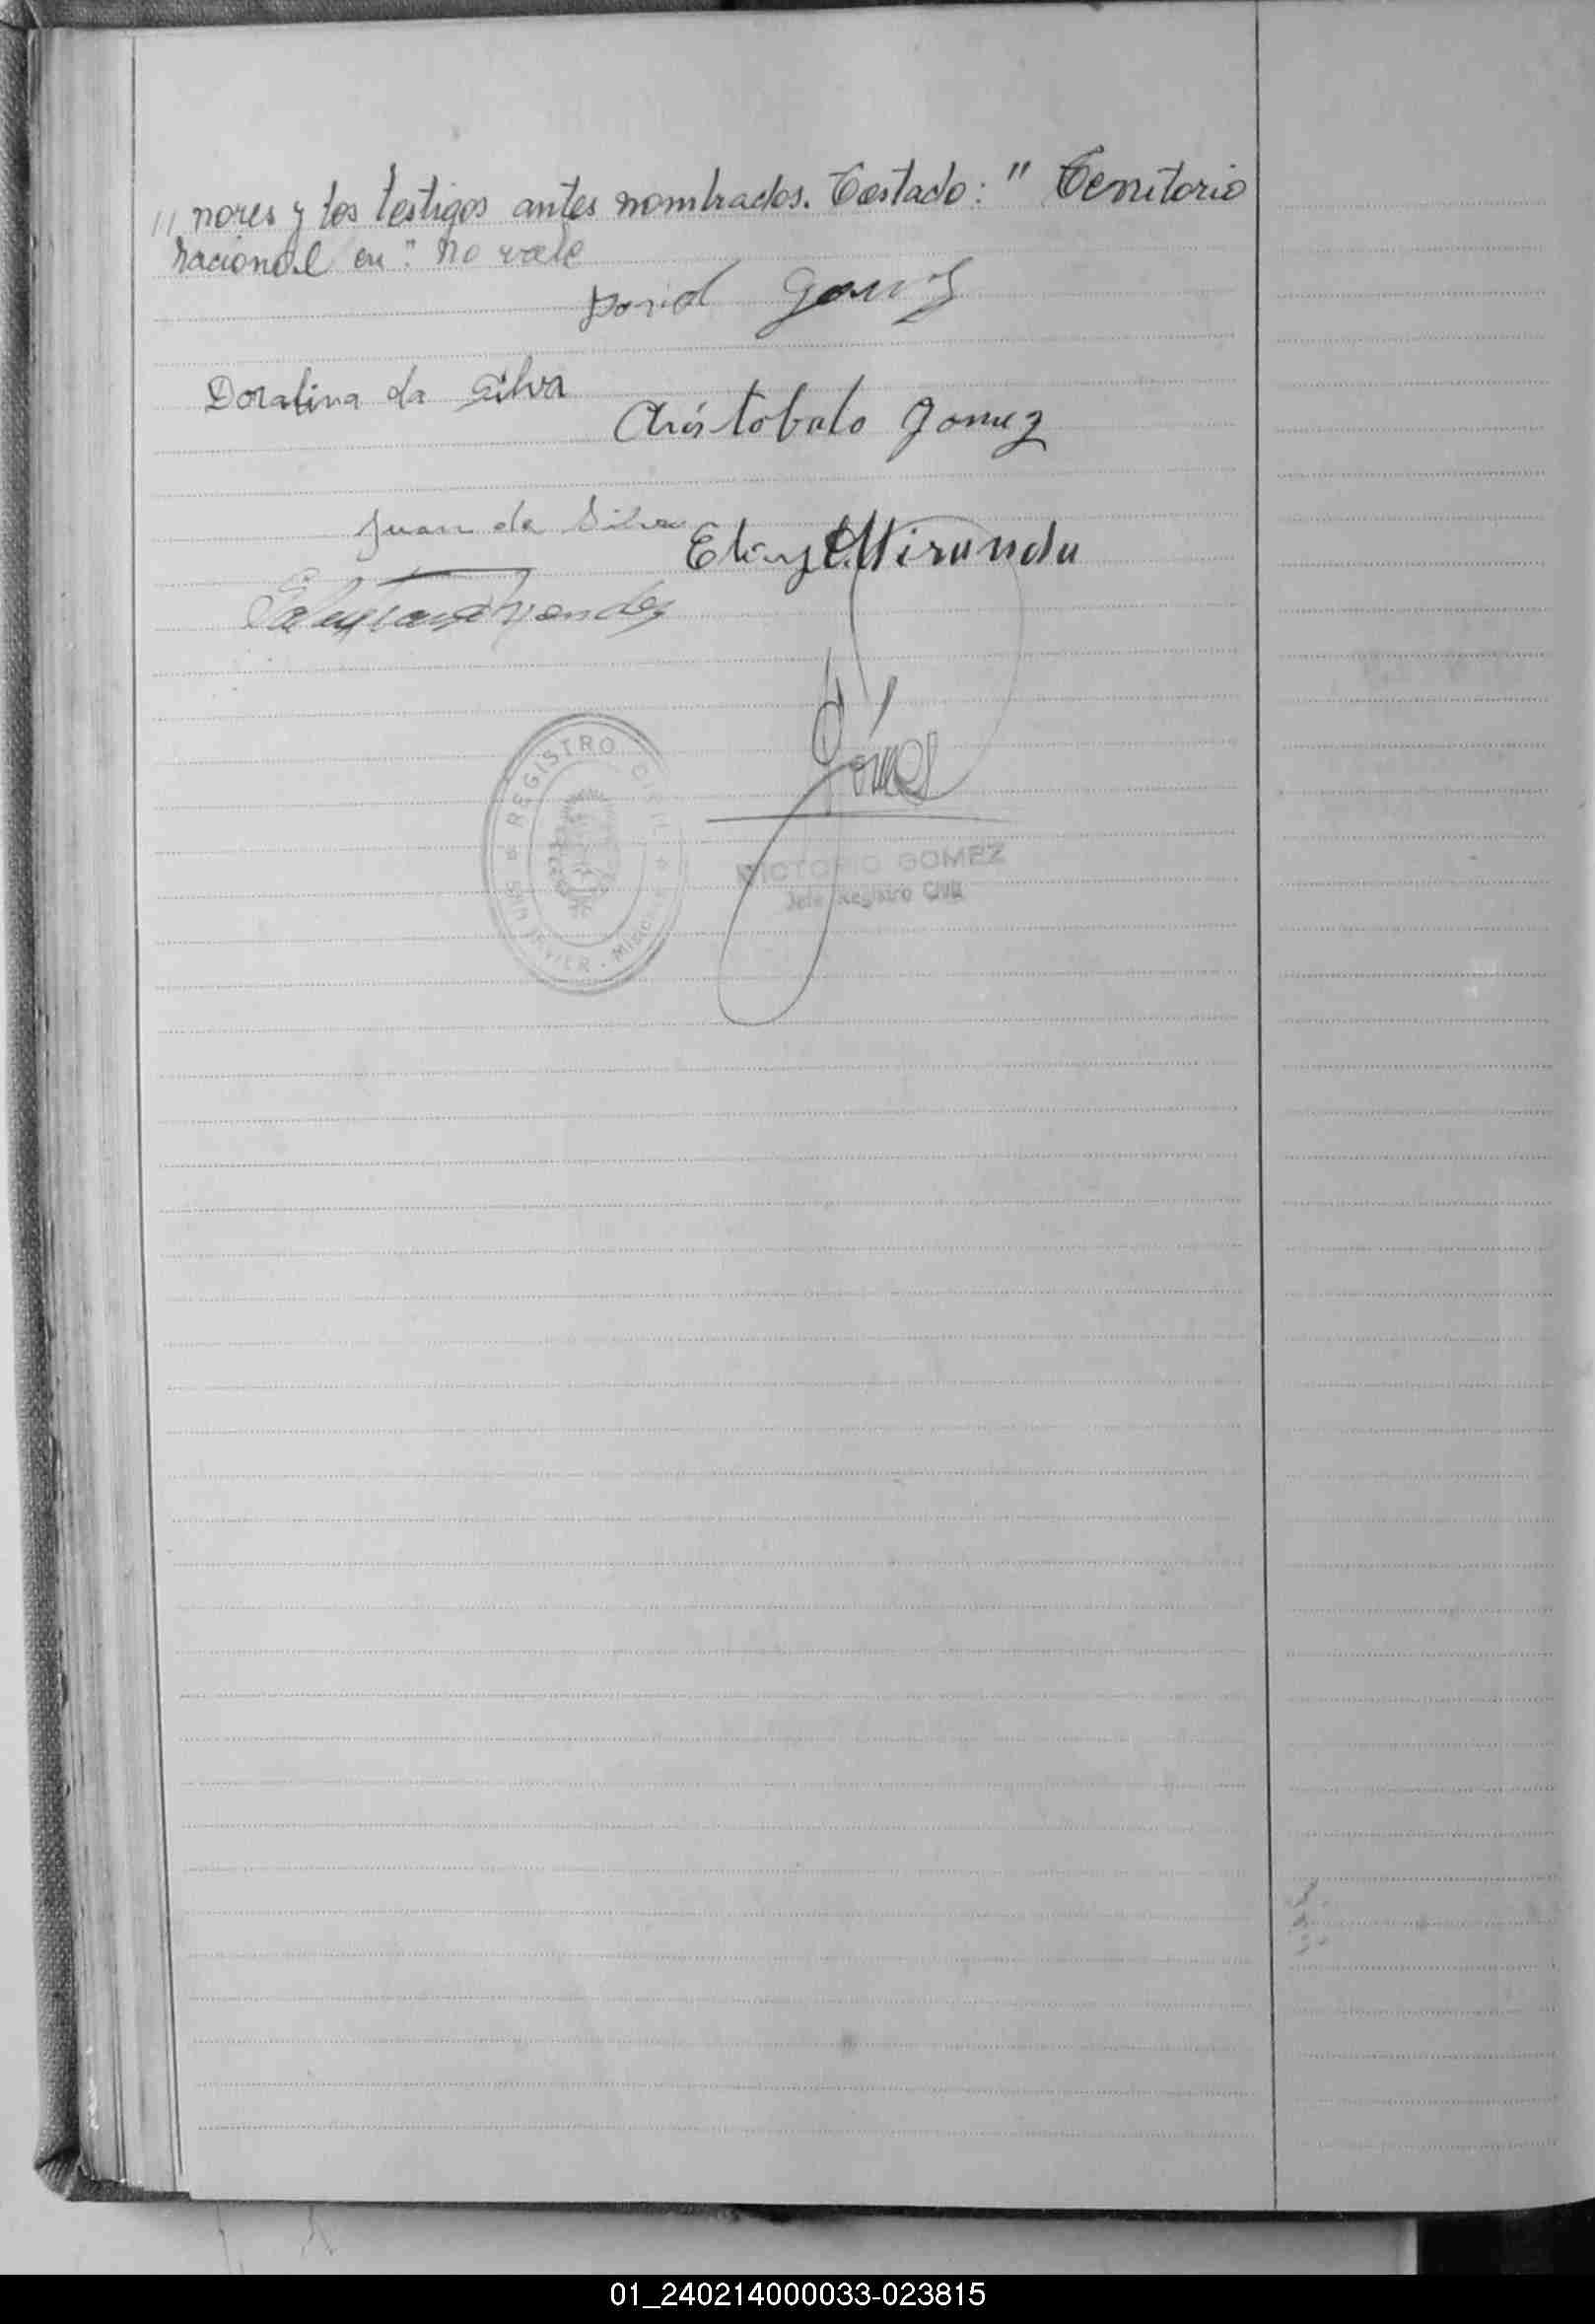 // nores y los testigos antes nombrados. Testado: " Territorio
nacional en": no vale
Doralina da Silva
Christobalo Gomez
Juan da Silva
Miranda
Gómez
REGISTRO CIVIL
SAN JAVIER - Misiones
VICTORIO GOMEZ
Jefe Registro Civil
01_240214000033-023815